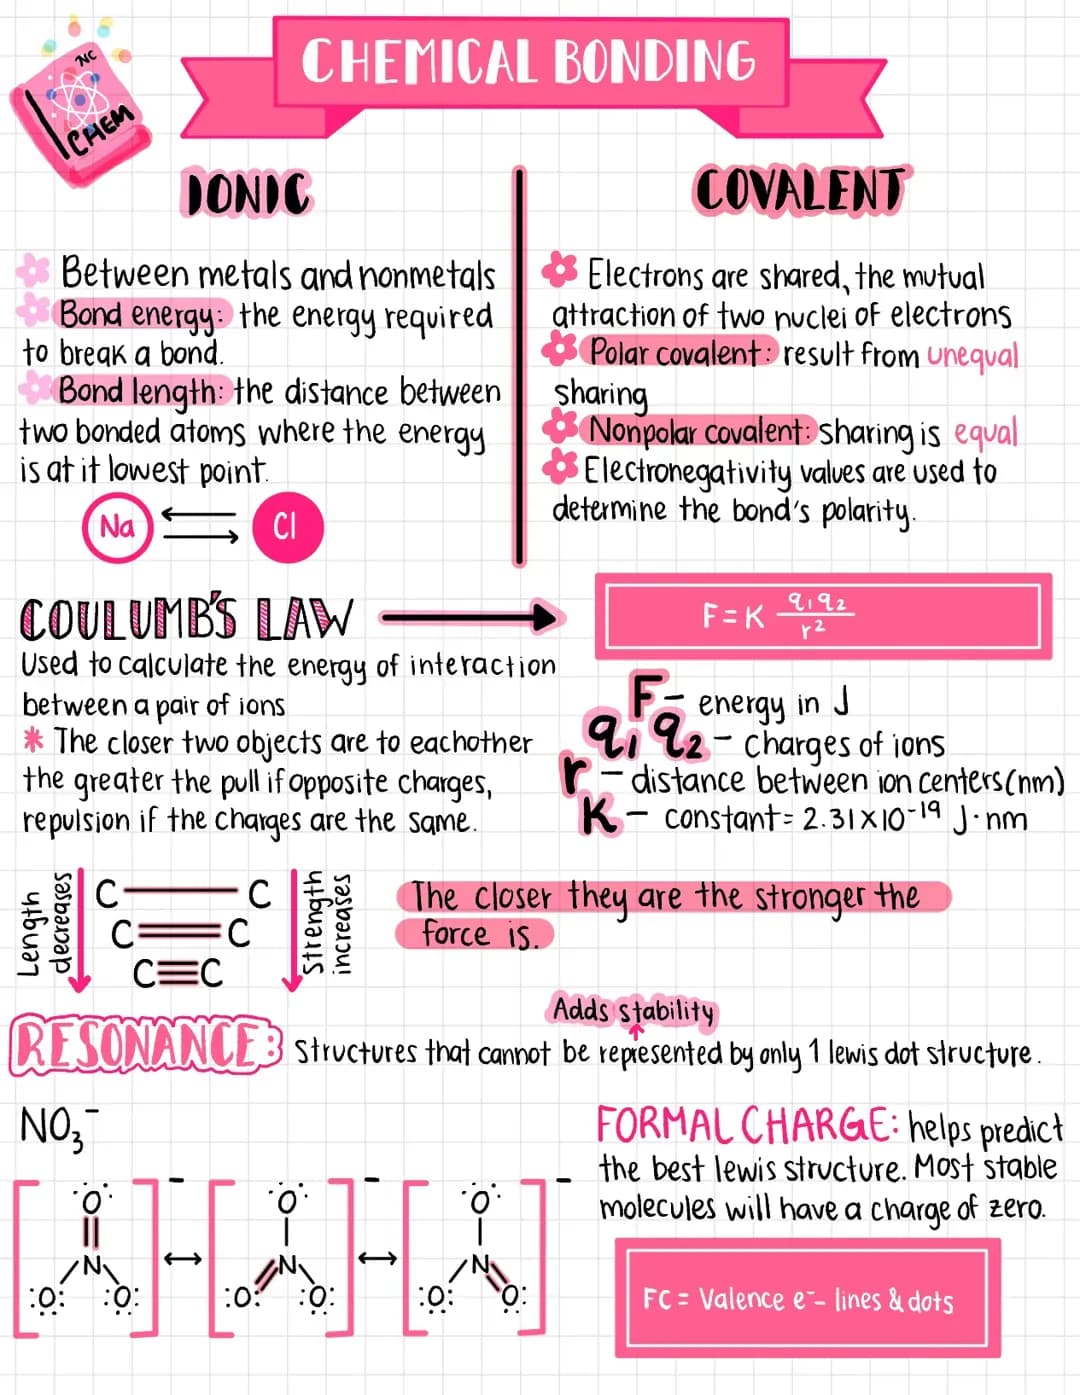 NC
CHEM
CHEMICAL BONDING
IONIC
Between metals and nonmetals
Bond energy: the energy required
to break a bond.
Bond length: the distance between
two bonded atoms where the energy
is at it lowest point.
Na
Cl
COVALENT
Electrons are shared, the mutual
attraction of two nuclei of electrons
Polar covalent: result from unequal
sharing
Nonpolar covalent: sharing is equal
Electronegativity values are used to
determine the bond's polarity.
COULUMB'S LAW
F=K q₁q₂/r²
Used to calculate the energy of interaction
between a pair of ions
* The closer two objects are to eachother
the greater the pull if opposite charges,
repulsion if the charges are the same.
F - energy in J
q₁ q₂ - Charges of ions
r - distance between ion centers(nm)
K - constant= 2.31x10⁻¹⁹ J·nm
Length
decreases
C — C
C = C
C≡C
Strength
increases
The closer they are the stronger the
force is.
Adds stability
RESONANCE: Structures that cannot be represented by only 1 lewis dot structure.
NO₃⁻
O
N
O O
-
↔
O
N
O O
-
↔
O
N
O O
-
FORMAL CHARGE: helps predict
the best lewis structure. Most stable
molecules will have a charge of zero.
FC = Valence e⁻- lines & dots